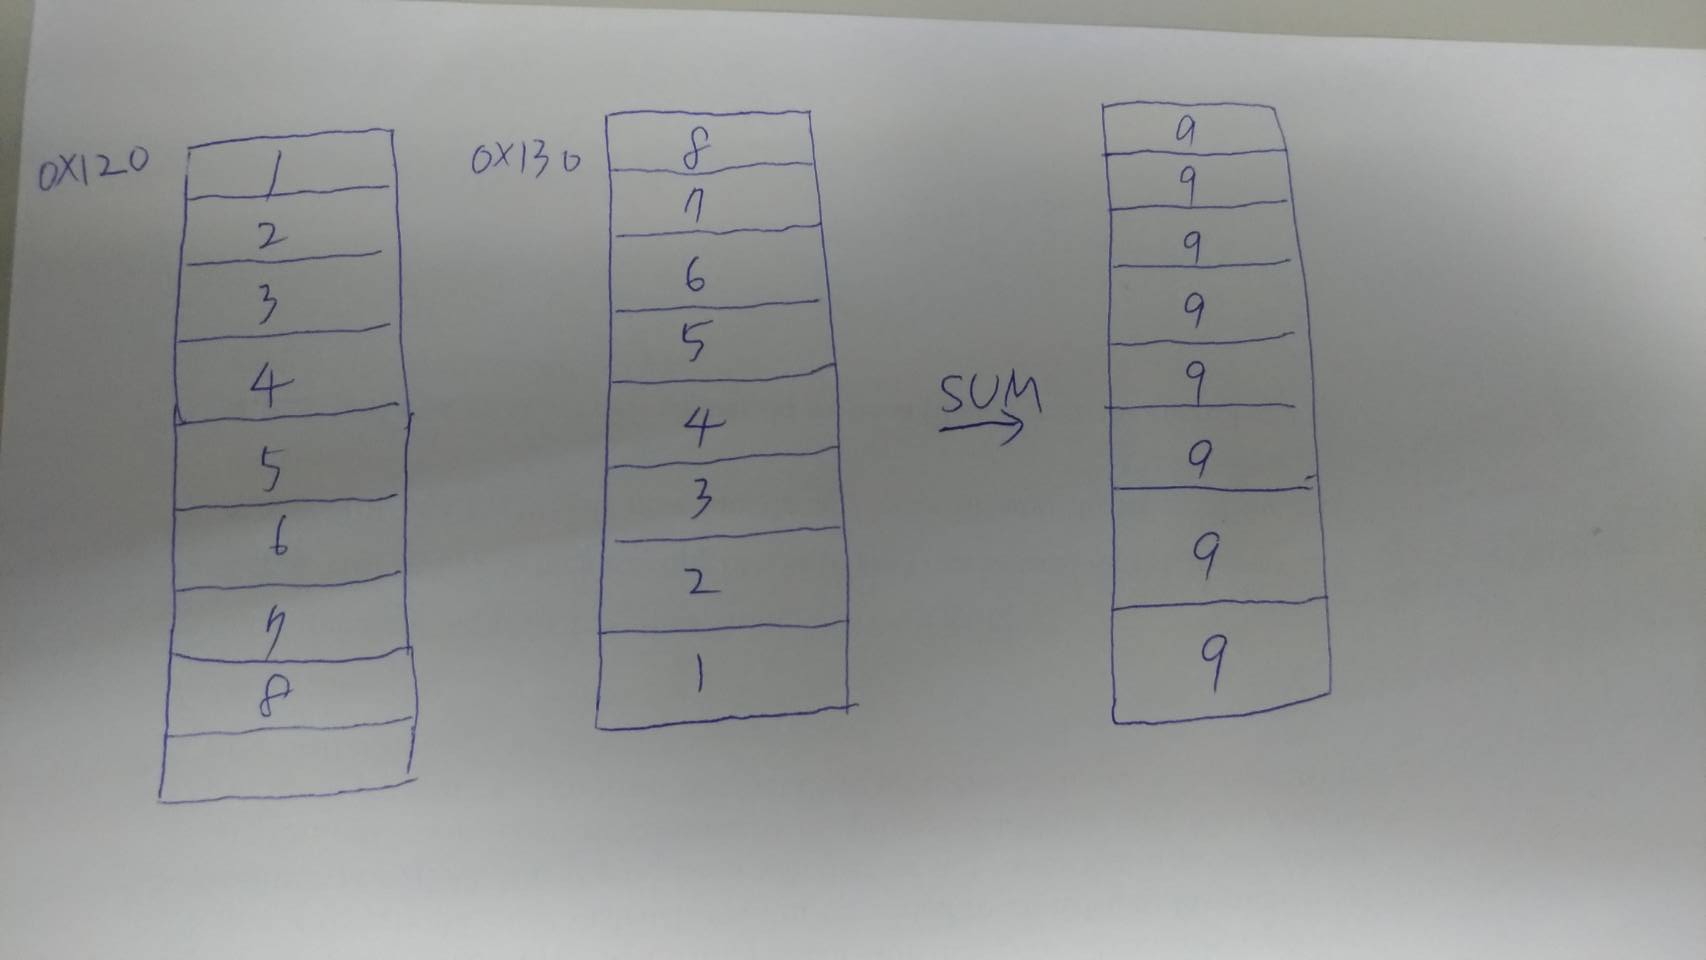 0X120
1
2
3
4
5
6
7
8
0X130
8
7
6
5
4
3
2
1
SUM
9
9
9
9
9
9
9
9